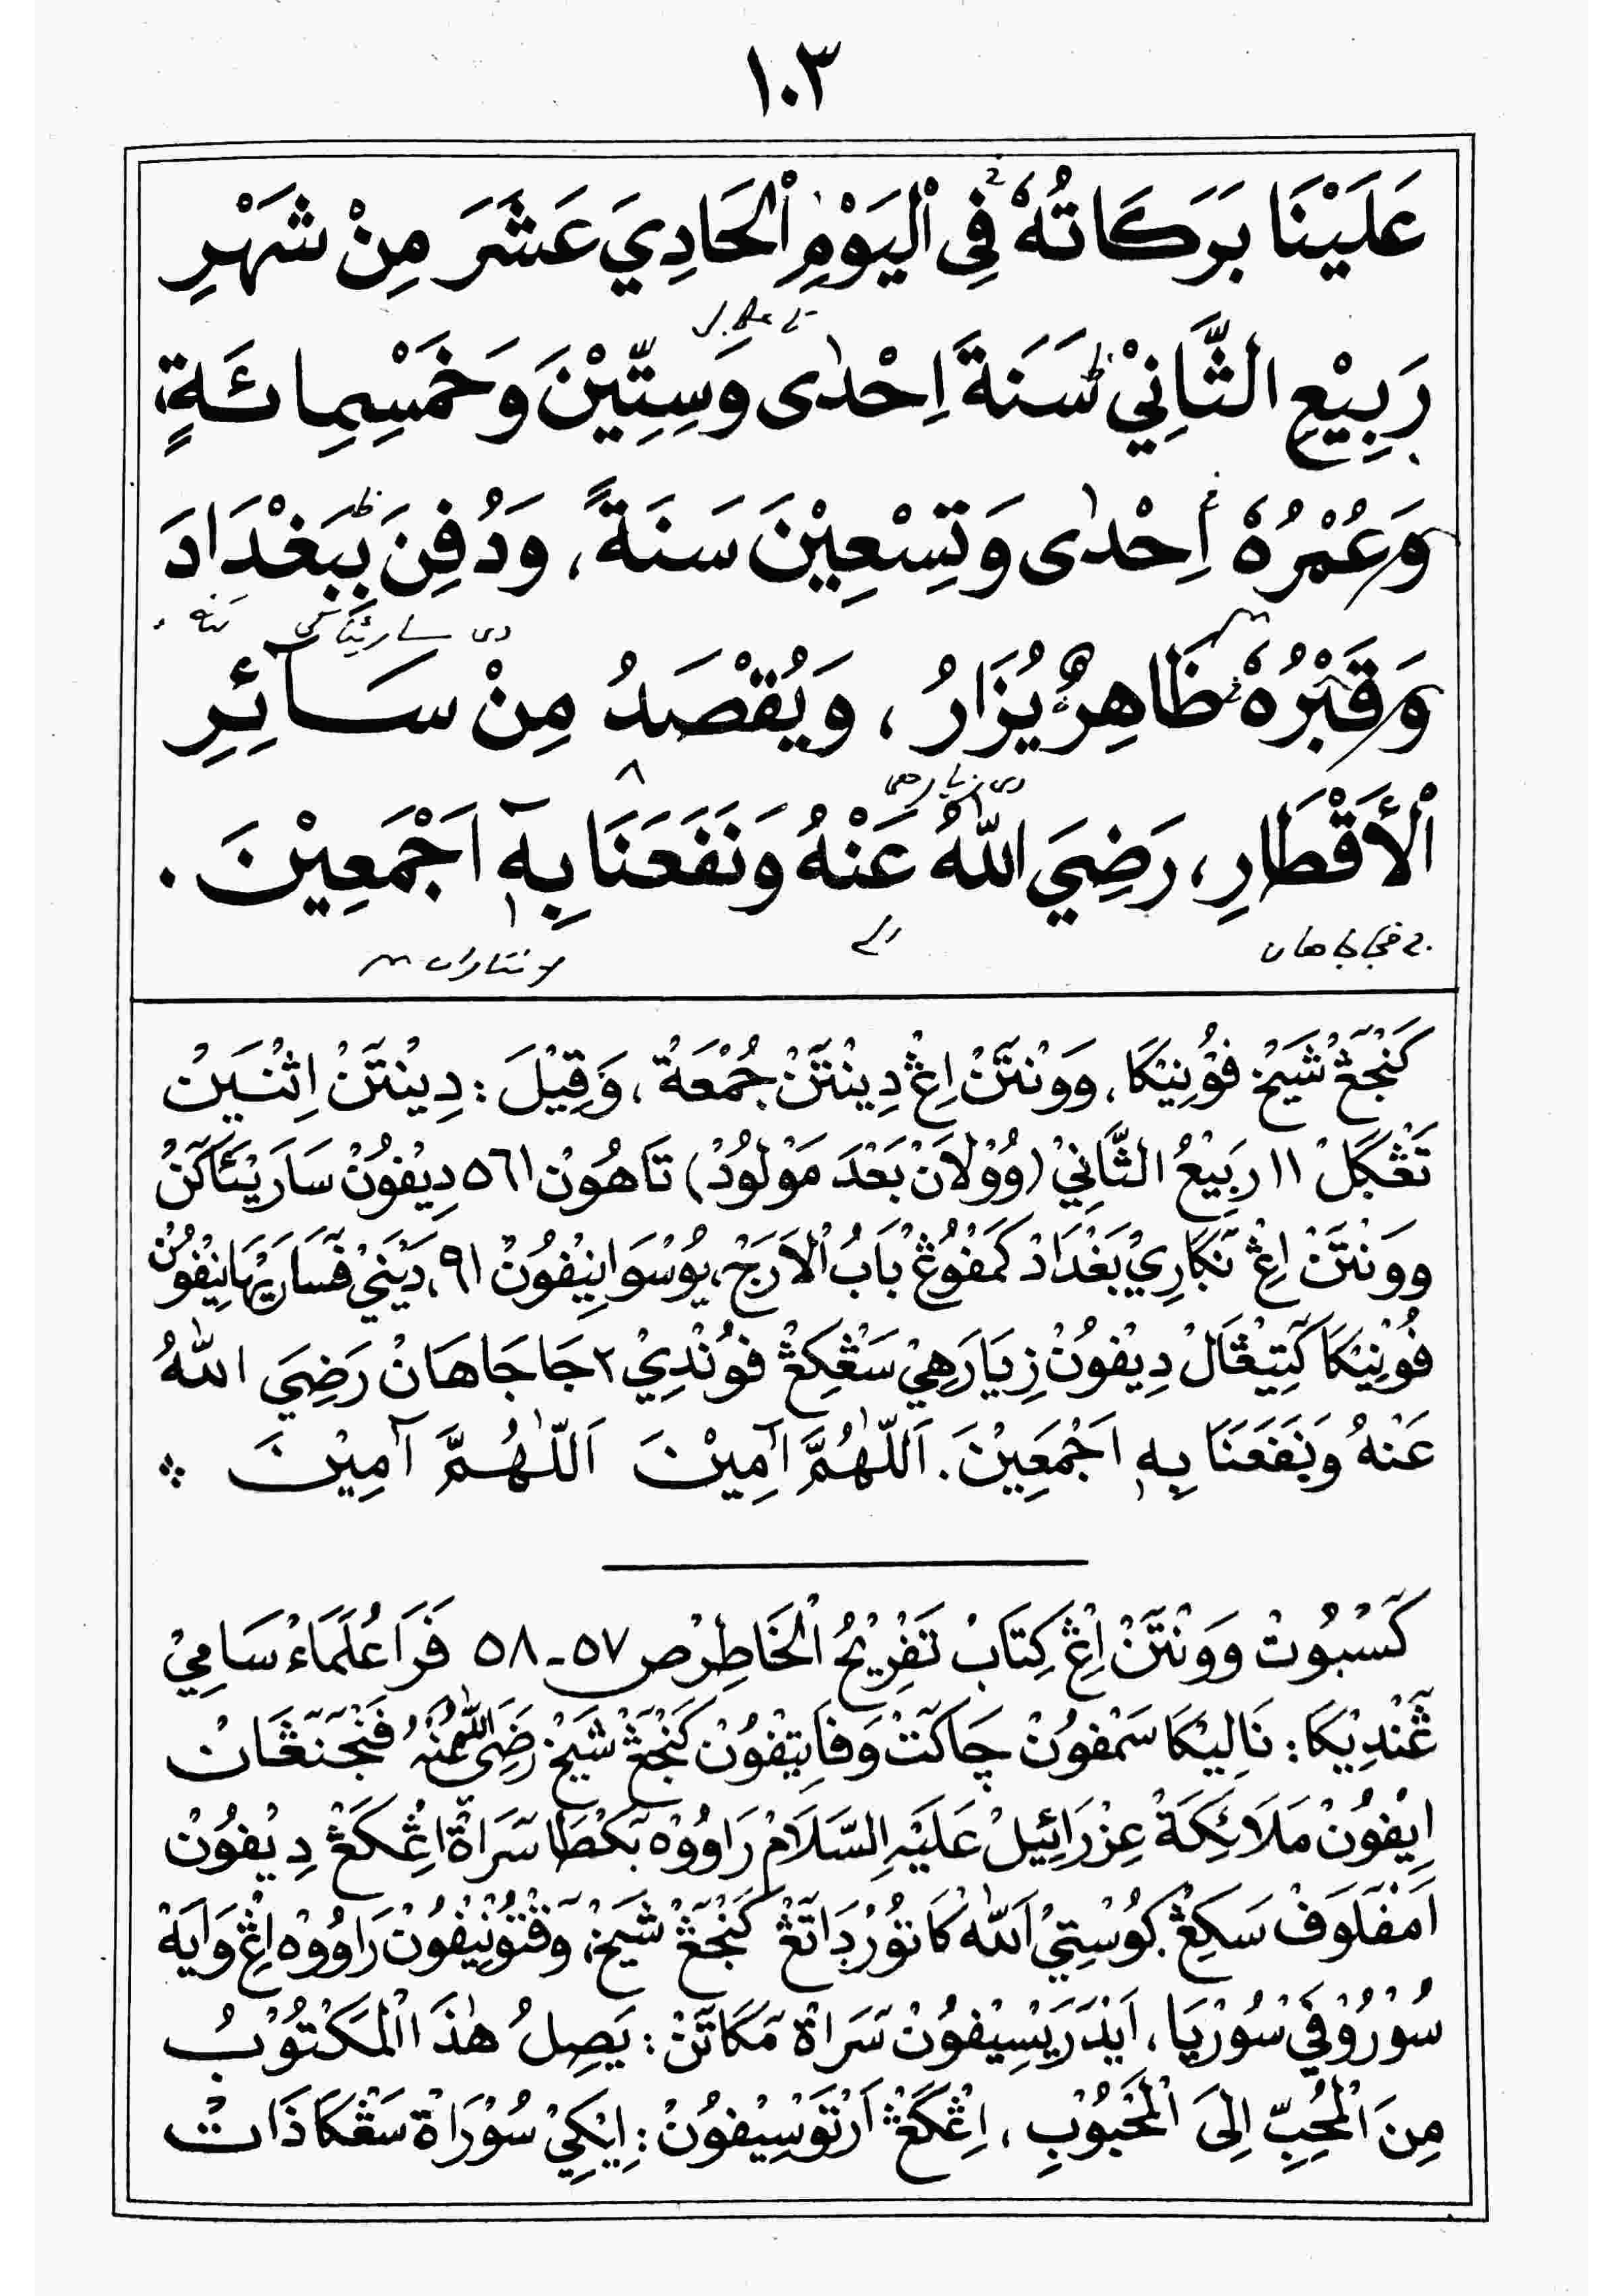 ١٠٣
عَلَيْنَا بَرَكَاتُهُ فِى الْيَوْمِ الْحَادِيَ عَشَرَ مِنْ شَهْرِ
رَبِيْعِ الثَّانِيْ سَنَةَ اِحْدٰى وَسِتِّيْنَ وَخَمْسِمِائَةٍ،
وَعُمْرُهُ اِحْدٰى وَتِسْعِيْنَ سَنَةً، وَدُفِنَ بِبَغْدَادَ
وَقَبْرُهُ ظَاهِرٌ يُزَارُ، وَيُقْصَدُ مِنْ سَآئِرِ
دى زيارهى
الْأَقْطَارِ، رَضِيَ اللّٰهُ عَنْهُ وَنَفَعَنَا بِهِ اَجْمَعِيْنَ.
كَنْجَڠْ شَيْخْ فُوْنِيْكَا، وَوَنْتَنْ اِڠْ دِيْنْتَنْ جُمْعَةْ، وَقِيْلَ: دِيْنْتَنْ اِثْنَيَنْ
تَڠْڮَلْ ١١ رَبِيْعُ الثَّانِيْ (وُوْلَانْ بَعْدَ مَوْلُوْدْ) تَاهُوْن ٥٦١ دِيْفُوْنْ سَارَيْئَاكَنْ
وَوَنْتَنْ اِڠْ نَڮَارِيْ بَغْدَادْ كَمْفُوْڠْ بَابُ الْاَرَجْ، يُوْسْوَانِيْفُوْنْ ٩١، دَيْنَيْ فَسَارَيْهَانِيْفُوْنْ
فُوْنِيْكَا كَتِيْڠَالْ دِيْفُوْنْ زِيَارَهِيْ سَڠْكِڠْ فُوْنْدِيْ٢ جَاجَاهَانْ رَضِيَ اللّٰهُ
عَنْهُ وَنَفَعَنَا بِهِ اَجْمَعِيْنَ. اَللّٰهُمَّ اٰمِيْنَ اَللّٰهُمَّ اٰمِيْنَ
كَسْبُوْتْ وَوَنْتَنْ اِڠْ كِتَابْ تَفْرِيْحُ الْخَاطِرْ ص ٥٧-٥٨ فَرَا عُلَمَاءْ سَامِيْ
ڠَنْدِيْكَا: نَالِيْكَا سَمْفُوْنْ چَاكَتْ وَفَاتِيْفُوْنْ كَنْجَڠْ شَيْخْ رَضِيَ اللّٰهُ عَنْهُ فَنْجَنَڠَانْ
اِيْفُوْنْ مَلَائِكَةْ عِزْرَائِيْلْ عَلَيْهِ السَّلَامْ رَاوُوْهْ بَكْطَا سَرَاةْ اِڠْكَڠْ دِيْفُوْنْ
اَمْفْلَوَفْ سَكِڠْ ڮُوْسْتِيْ اَللّٰهْ كَاتُوْرْ دَاتَڠْ كَنْجَڠْ شَيْخْ، وَقْتُوْنِيْفُوْنْ رَاوُوْهْ اِڠْ وَايَهْ
سُوْرُوْفَيْ سُوْرْيَا، اَيْدْرَيْسِيْفُوْنْ سَرَاةْ مَكَاتَنْ: يَصِلُ هٰذَا الْمَكْتُوْبُ
مِنَ الْمُحِبِّ اِلَى الْمَحْبُوْبِ، اِڠْكَڠْ اَرْتَوْسِيْفُوْنْ: اِيْكِيْ سُوْرَاةْ سَڠْكَا ذَاتْ